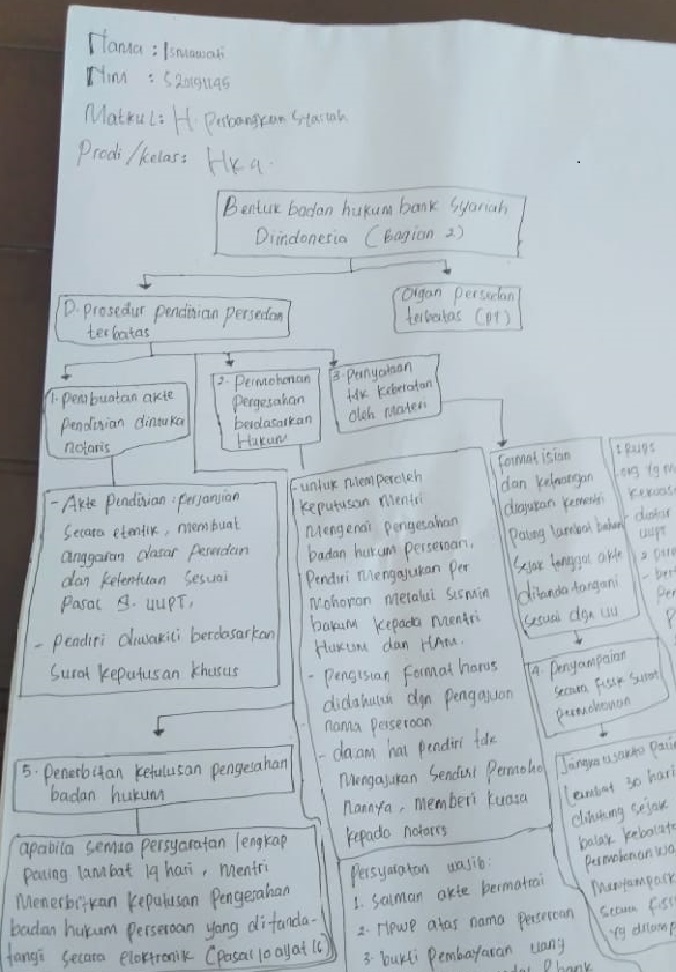 Nama : Ismawati
Nim : S20191145
Matkul: H. Perbangkan Syariah
Prodi/kelas: HK4.
Bentuk badan hukum bank Syariah
Diindonesia (Bagian 2)
D. prosedur pendirian perseroan
terbatas
Organ perseroan
terbatas (PT)
1. pembuatan akte
pendirian dimuka
notaris
2. Permohonan
Pergesahan
berdasarkan
Hukum
3. pernyataan
tdk keberatan
oleh materi
- Akte pendirian : perjanjian
secara otentik, membuat
anggaran dasar perseroan
dan ketentuan sesuai
Pasal 8. UUPT,
- pendiri diwakili berdasarkan
surat keputusan khusus
- untuk memperoleh
keputusan mentri
mengenai pengesahan
badan hukum perseroan,
Pendiri mengajukan per
mohonan melalui sismin
bakum kepada mentri
Hukum dan HAM.
- pengisian format harus
didahului dgn pengajuan
nama perseroan
- dalam hal pendiri tdk
mengajukan sendiri permoho
nannya, memberi kuasa
kepada notaris
format isian
dan keterangan
diajukan kementri
paling lambat
sejak tanggal akte
ditandatangani
sesuai dgn uu
1. RUPS
org yg
- diatur
UUPT
4. Penyampaian
secara fisik surat
permohonan
Jangka waktu
Lambat 30 hari
dihitung sejak
Permohonan
secara
yg
5. Penerbitan ketulusan pengesahan
badan hukum
apabila semua persyaratan lengkap
paling lambat 14 hari, mentri
menerbitkan keputusan Pengesahan
badan hukum perseroan yang ditanda-
tangi secara elektronik (pasal 10 ayat (6)
Persyaratan wajib:
1. Salman akte bermatrai
2. NPWP atas nama perseroan
3. bukti pembayaran uang